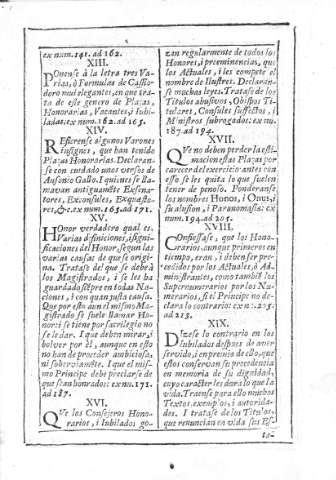 ex num. 141. ad 162.
XIII.
Ponense à la letra tres Va-
rias, ò Formulas de Cassio-
doro mui elegantes, en que tra-
ta de este genero de Plaças,
Honorarias, Vacantes, i Iubi-
ladas, ex num. 162. ad 165.
XIV.
Refierense algunos Varones
insignes, que han tenido
Plaças Honorarias. Declaran-
se con cuidado unos versos de
Ausonio Gallo. I quienes se lla-
mavan antiguamẽte Exsena-
tores, Exconsules, Exquæsto-
res, &c. ex num. 165. ad 171.
XV.
Honor verdadero qual es.
Varias difiniciones, i signi-
ficaciones del Honor, segun las
varias causas de que se origi-
na. Tratase del que se debe à
los Magistrados, i se les ha
guardado siẽpre en todas Na-
ciones, i con quan justa causa.
Que por esto aun el mismo Ma-
gistrado se suele llamar Ho-
nor: i se tiene por sacrilegio no
se le dar. I que deben mirar, i
bolver por èl, aunque en esto
no han de proceder ambiciosa,
ni soberviamẽte. I que el mis-
mo Principe debe preciarse de
que seã honrados: ex nu. 171.
ad 187.
XVI.
Que los Consejeros Hono-
rarios, i Iubilados go-
zan regularmente de todos los
Honores, i preeminencias, que
los Actuales, i les compete el
nombre de Ilustres. Declaran-
se muchas leyes. Tratase de los
Titulos abusivos, Obispos Ti-
tulares, Consules suffectos, i
Ministros subrogados: ex nu.
187. ad 194.
XVII.
Que no deben perder la esti-
macion estas Plaças por
carecer del exercicio: antes con
esto se les quita lo que suelen
tener de penoso. Ponderanse
los nombres Honos, i Onus, i
su alusion, i Paronomasia: ex
num. 194. ad 205.
XVIII.
Confiessase, que los Hono-
rarios, aunque primeros en
tiempo, eran, i deben ser pre-
cedidos por los Actuales, ò Ad-
ministrantes, como tambiẽ los
Supernumerarios por los Nu-
merarios, si el Principe no de-
clara lo contrario: ex nu. 205.
ad 213.
XIX.
Dizese lo contrario en los
Iubilados despues de aver
servido, i en premio de ello, que
estos conservan su precedencia
en memoria de su dignidad,
cuyo caracter les dora lo que la
vida. Traense para ello muchos
Textos, exemplos, i autorida-
des. I tratase de los Titulos,
que renuncian en vida sus Es-